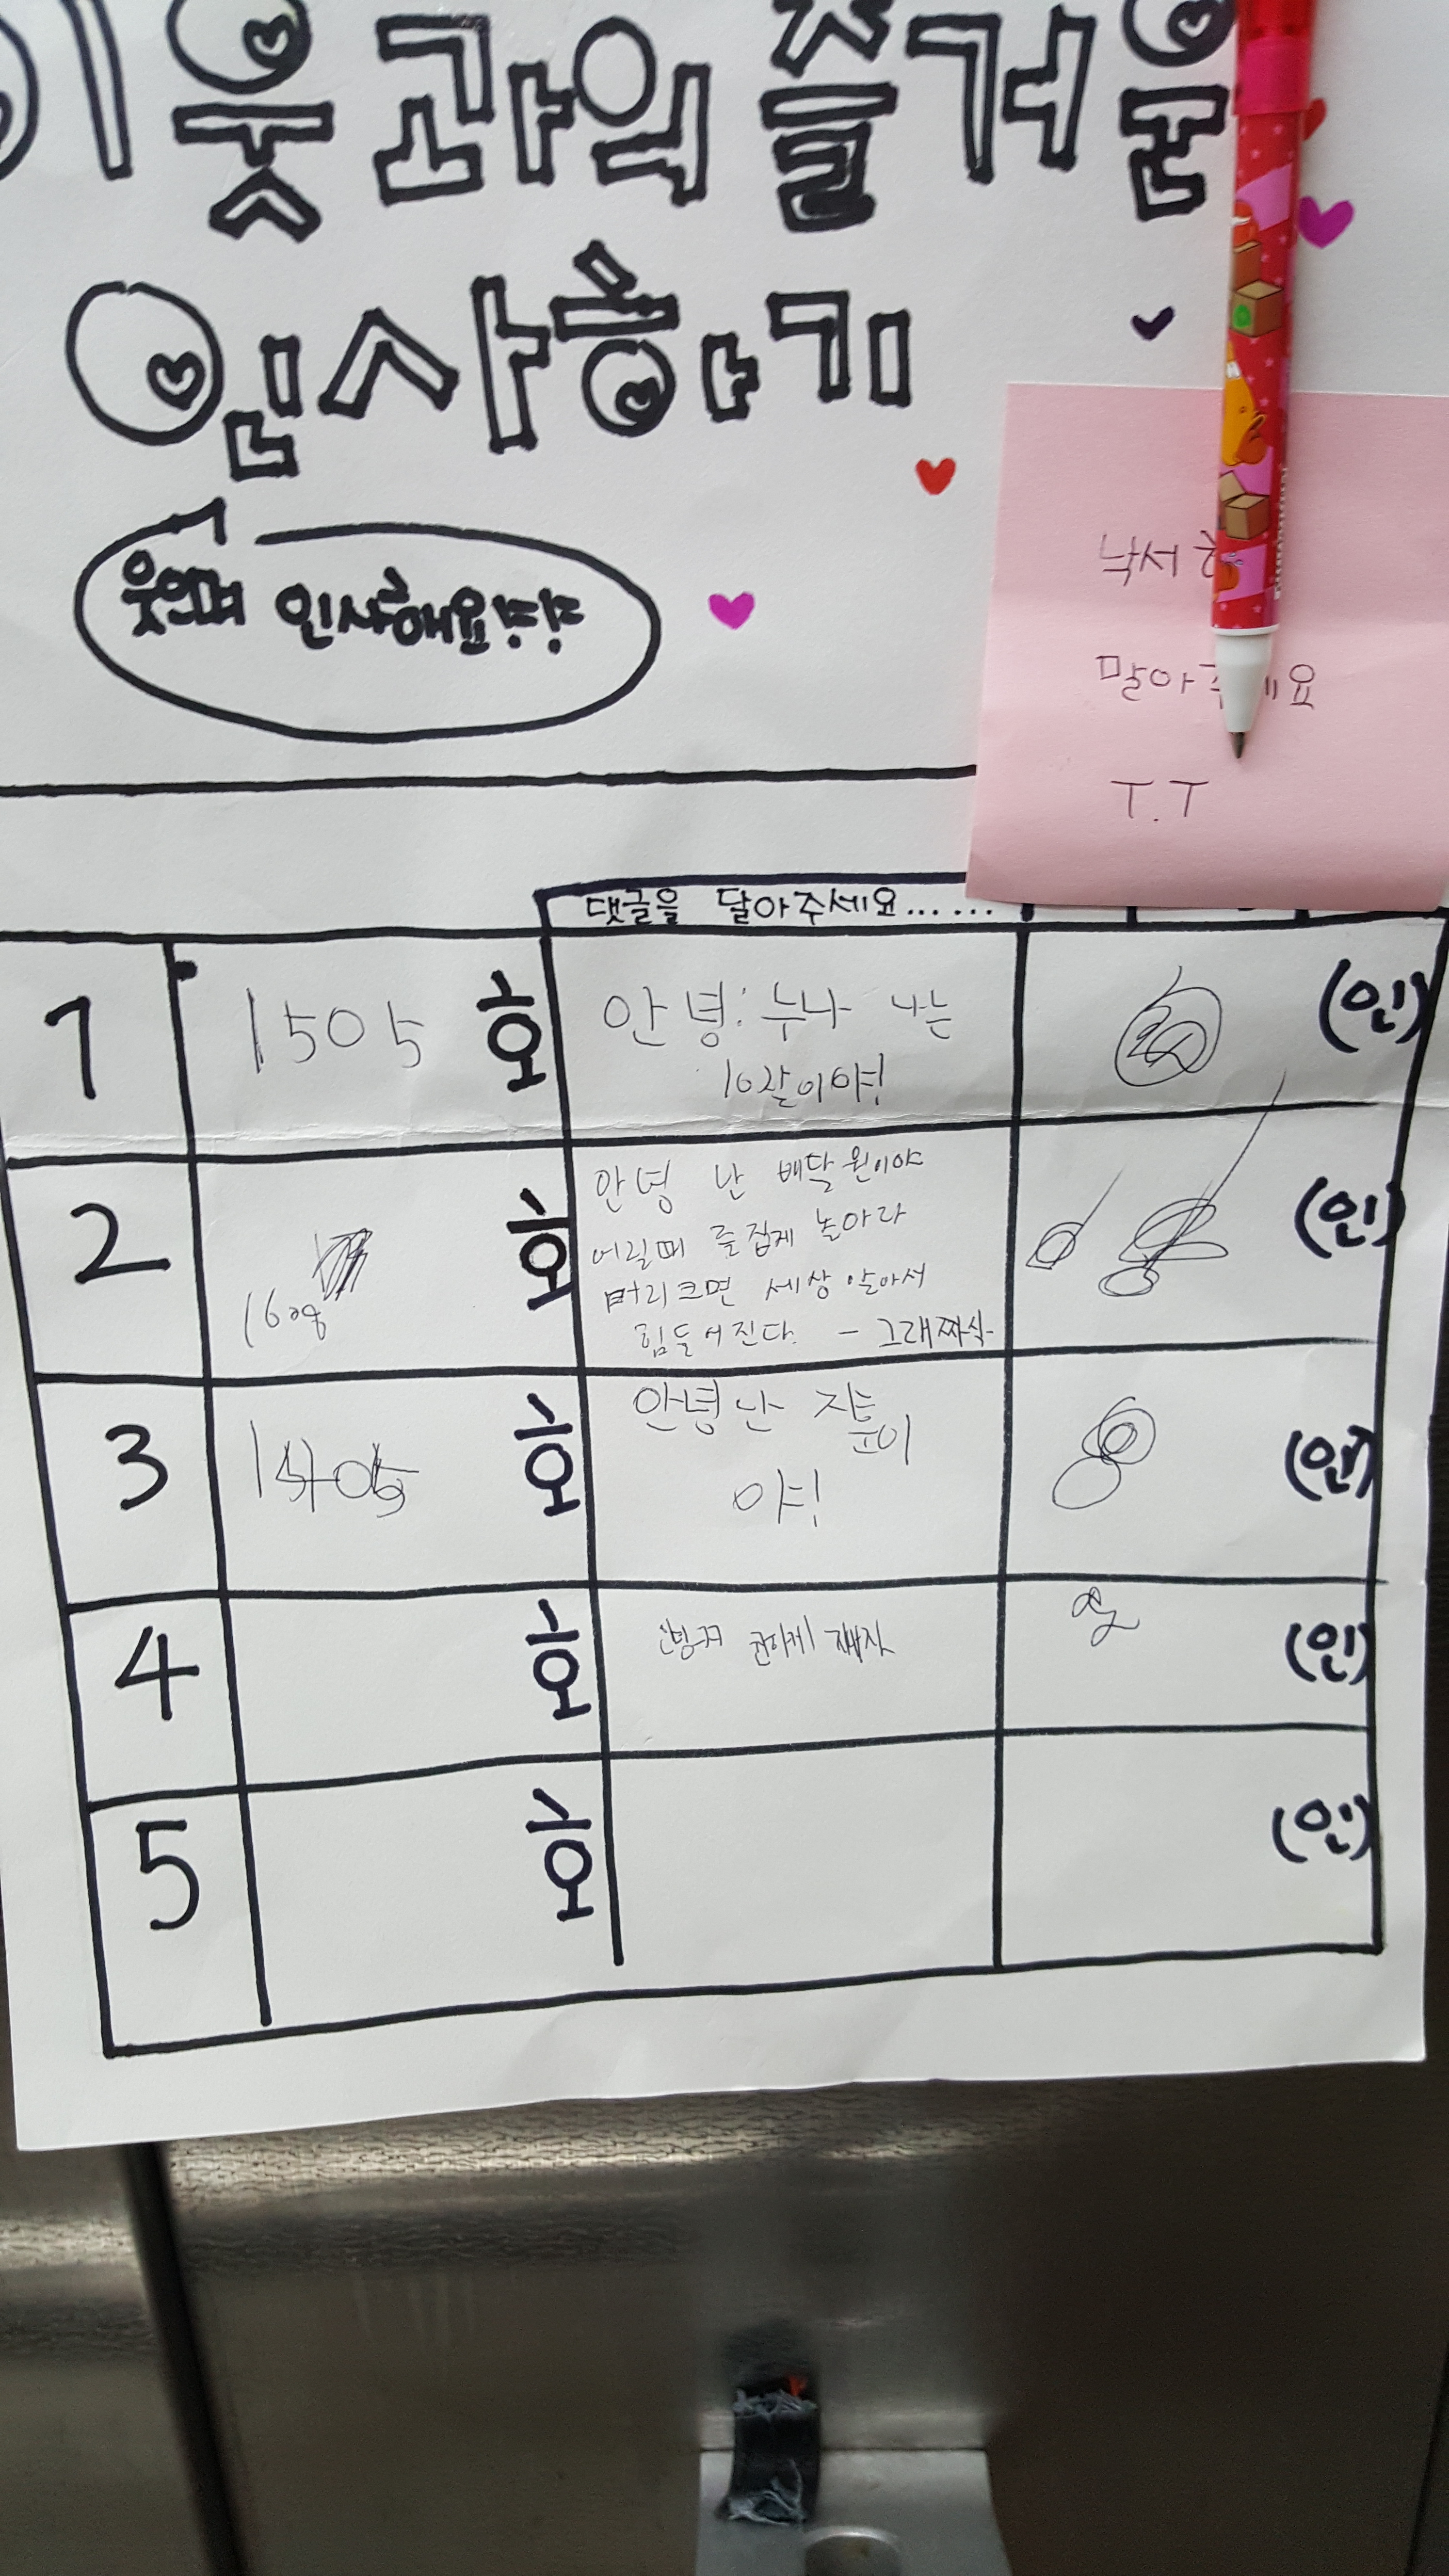 이웃과의 즐거운
인사하기
웃으며 인사해요!
낙서
말아주세요
T.T
댓글을 달아주세요......
1 1505 호 안녕! 누나 나는 (인)
10살이야!
2 호 안녕 난 배달원이야 (인)
어릴때 즐겁게 놀아라
머리크면 세상 알아서
힘들어진다. - 그래짜식-
3 1405 호 안녕 난 지훈이 (인)
야!
4 호 (인)
5 호 (인)